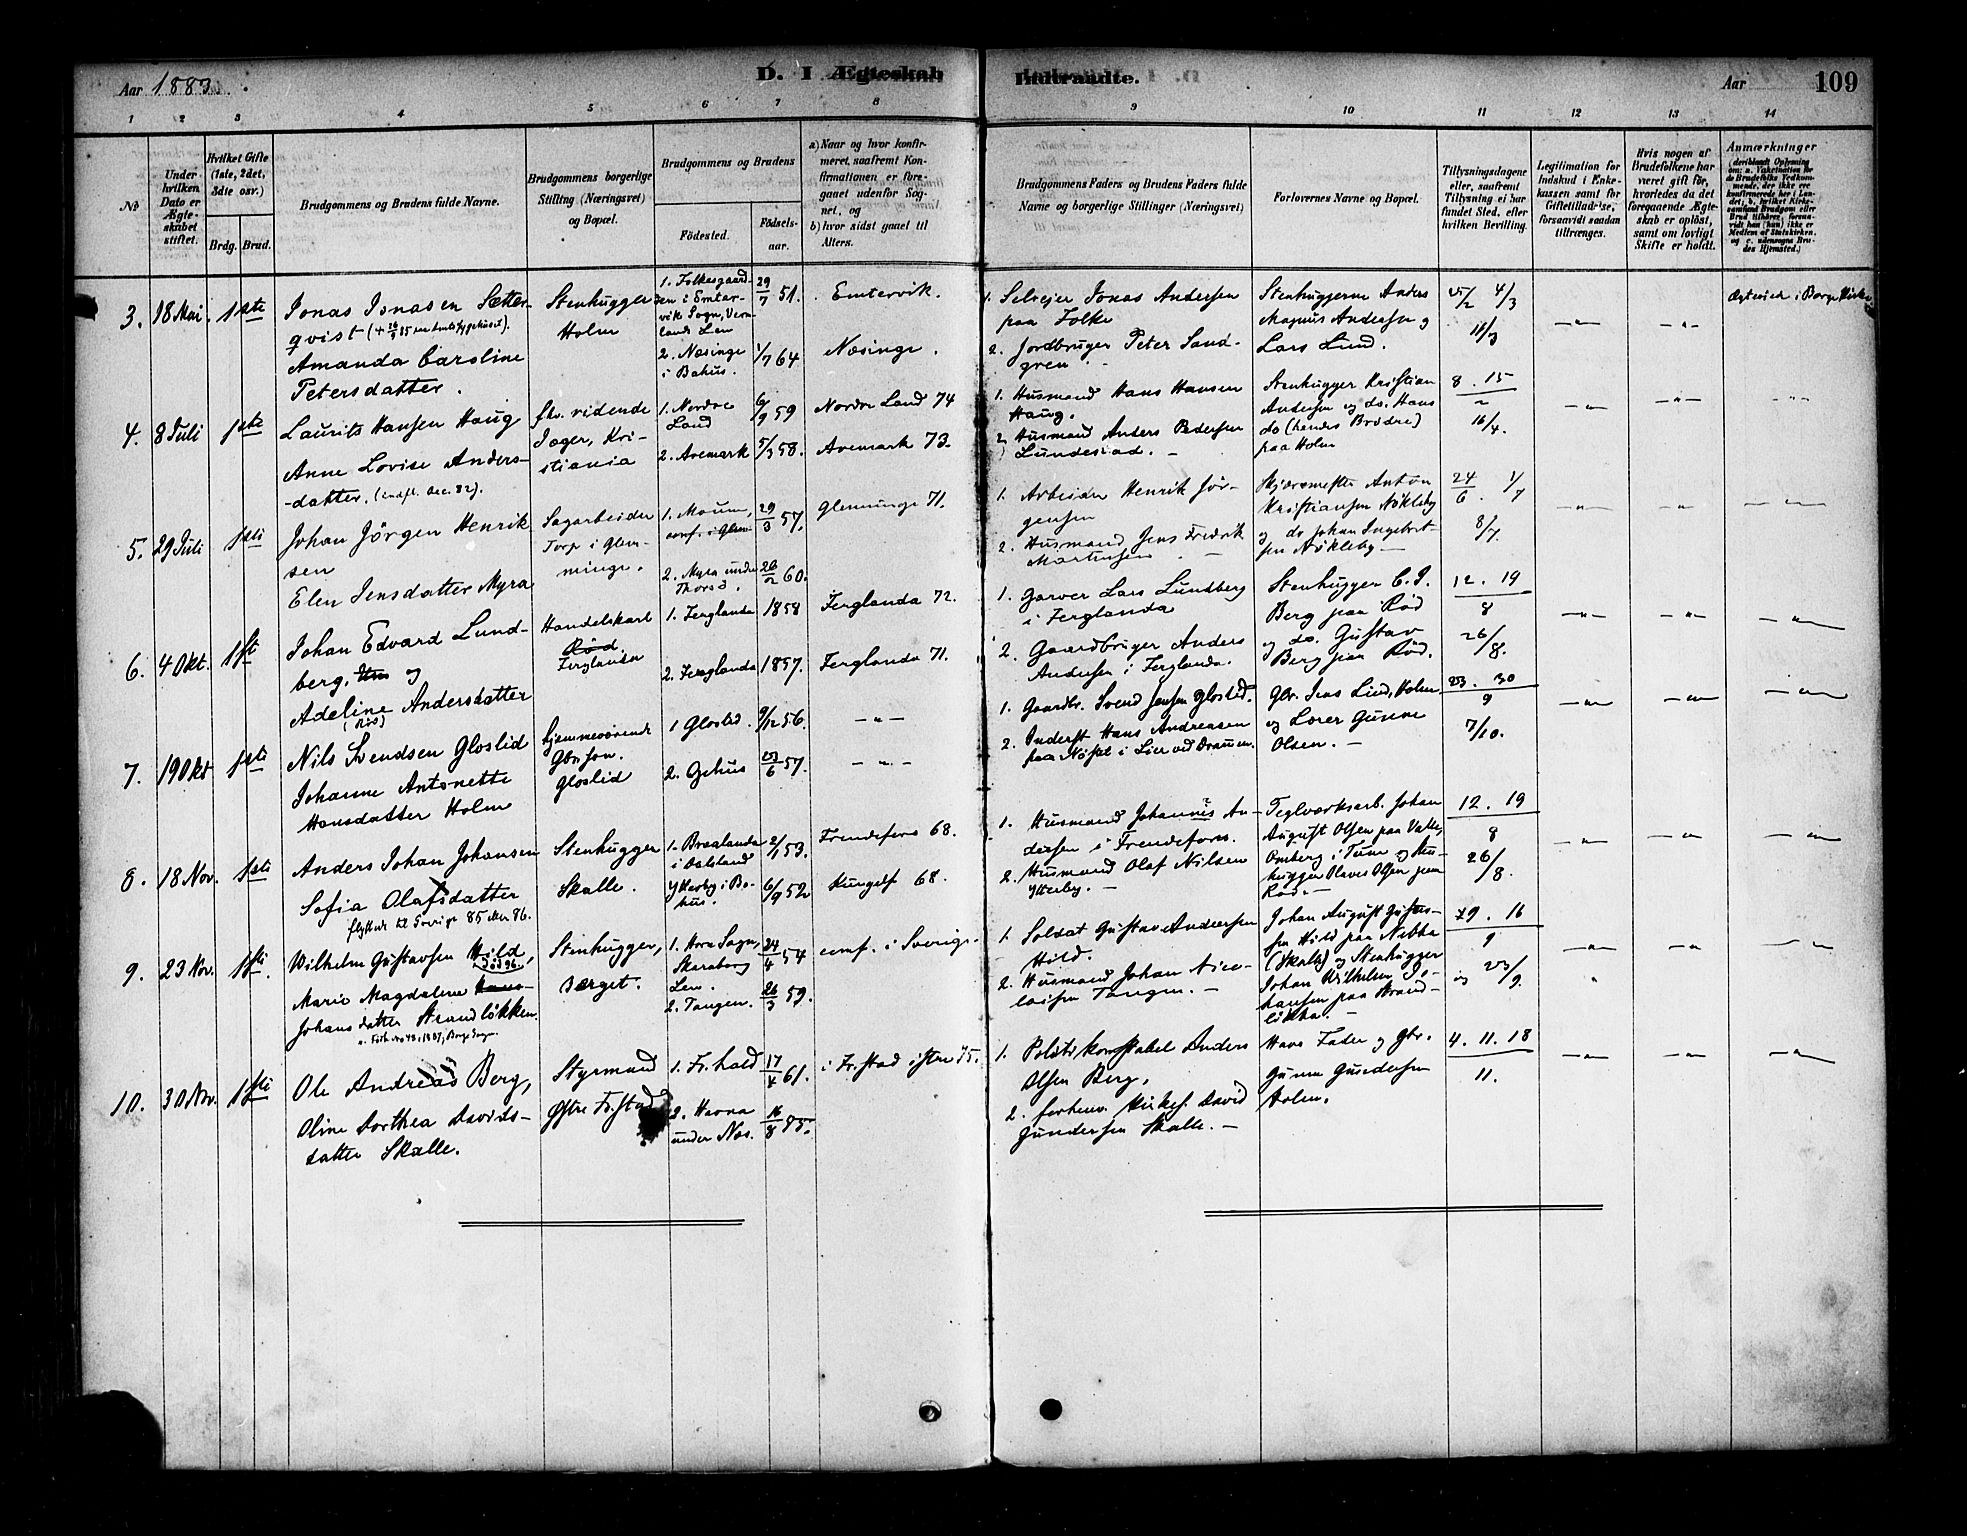 Aar 1883.
D. I Ægteskab
Indtraadte.
Aar
109
1 2 3 4 5 6 7 8 9 10 11 12 13 14
No
Under hvilken Dato er Ægteskabet stiftet.
Hvilket Gifte (1ste, 2det, 3die osv.)
Brdg. Brud.
Brudgommens og Brudens fulde Navne.
Brudgommens borgerlige Stilling (Næringsvei) og Bopæl.
Brudgommens og Brudens
Fødested.
Fødselsaar.
a) Naar og hvor konfirmeret, saafremt Konfirmationen er foregaaet udenfor Sognet, og
b) hvor sidst gaaet til Alters.
Brudgommens Faders og Brudens Faders fulde Navne og borgerlige Stillinger (Næringsvei)
Forlovernes Navne og Bopæl.
Tillysningsdagene eller, saafremt Tillysning ei har fundet Sted, efter hvilken Bevilling.
Legitimation for Indskud i Enkekassen samt for Giftetilladelse, forsaavidt saadan tiltrænges.
Hvis nogen af Brudefolkene har været gift før, hvorledes da det foregaaende Ægteskab er opløst, samt om lovligt Skifte er holdt.
Anmærkninger
3. 18 Mai. 1ste
Jonas Jonasen Sætterqvist
Amanda Caroline Petersdatter.
Stenhugger Holm
1. Folkesgaarden i Emtervik Sogn, Vermlands Len
2. Næsinge i Bahus.
29/7 51.
1/7 64
Emtervik.
Næsinge.
1. Selveier Jonas Andersen paa Folke
2. Jordbruger Peter Sandgren
Stenhuggerne Anders Magnus Andersen og Lars Lund.
5/2 4/3
11/3
Ægteviet i Borge Kirke
4. 8 Juli 1ste
Laurits Hansen Haug
Anne Lovise Andersdatter. (indfl. Dec. 82).
fhv. ridende Jæger, Kristiania
1. Nordre Land
2. Aremark
6/9 59
5/3 58.
Nordre Land 74
Aremark 73.
1. Husmand Hans Hansen Haug.
2. Husmand Anders Pedersen Lundestad.
Stenhugger Kristian Andersen og do. Hans do (hendes Brødre) paa Holm
8. 15
2
16/4.
5. 29 Juli 1ste
Johan Jörgen Henriksen
Elen Jensdatter Myra
Sagarbeider Torp i Glemminge.
1. Moum, conf. i Glem
2. Myra under Thorsø.
29/3 57.
20/2 60.
Glemminge 71.
1. Arbeider Henrik Jörgensen
2. Husmand Jens Fredrik Martinsen
Skjæremester Anton Kristiansen Nökleby og do Johan Ingebretsen Nökleby
24/6. 1/7
8/7.
6. 4 Okt. 1ste
Johan Edvard Lundberg. og
Adeline Andersdatter (Rød)
Handelskarl Rød Ferglanda
1. Ferglanda 1858
2. Ferglanda 1857.
Ferglanda 72.
Ferglanda 71.
1. Garver Lars Lundberg i Ferglanda
2. Gaardbruger Anders Andersen i Ferglanda.
Stenhugger C. J. Berg paa Rød og do. Gustav Berg paa Rød.
12. 19
8
26/8.
7. 19 Okt 1ste
Nils Svendsen Gloslid
Johanne Antonette Hansdatter Holm
hjemmeværende Gbr. Søn. Gloslid
1 Gloslid.
2. Gehus
9/12 56.
23/6 57.
1. Gaardbr. Svend Jensen Gloslid.
2. Inderst Hans Andreasen paa Nøste i Lier ved Dramm.
Gbr. Jens Lind, Holm og Lorer Gunne Olsen.
23. 30
9
7/10.
8. 18 Nov. 1ste
Anders Johan Johansen
Sofia Olafsdatter
flyttede til Sverige 85 eller 86.
Stenhugger Skalle.
1. Brælanda i Dalsland
Ytterby i Bohus.
2/1 53.
6/9 52
Frendefors 68.
Kungelf 68.
1. Husmand Johannis Andersen i Frendefors.
2. Husmand Olaf Nilsen Ytterby.
Teglværksarb. Johan August Olsen paa Valle, Omberg i Tune og Stenhugger Olaves Olsen paa Rød.
12. 19
8
26/8.
9. 23 Nov. 1ste
Wilhelm Gustavsen Hild, død 96.
Marie Magdalene Johansdatter Strandløkken.
Stenhugger, Berget.
1. Horn Sogn, Skaraborg Len.
2. Tangen.
24/4 54
26/3 59.
conf. i Sverige.
1. Soldat Gustav Andersen Hild.
2. Husmand Johan Nicolaisen Tangen.
Johan August Gustavsen Hild paa Nebba (Skalle) og Stenhugger Johan Wilhelm Johansen paa Strandløkka.
9. 16
9
og 23/9.
10. 30 Nov. 1ste
Ole Andreas Berg,
Oline Dorthea Davidsdatter Skalle.
Styrmand Østre Fr.stad
1. Fr.hald
2. Havna under Næs.
17/4 61.
16/8 55.
i Fr.stad østre 75.
1. Politikonstabel Anders Olsen Berg.
2. forhenv. Kirkes. David Gundersen Skalle.
Hans Fader og Gbr. Gunne Gundersen Holm.
4. 11. 18
11.